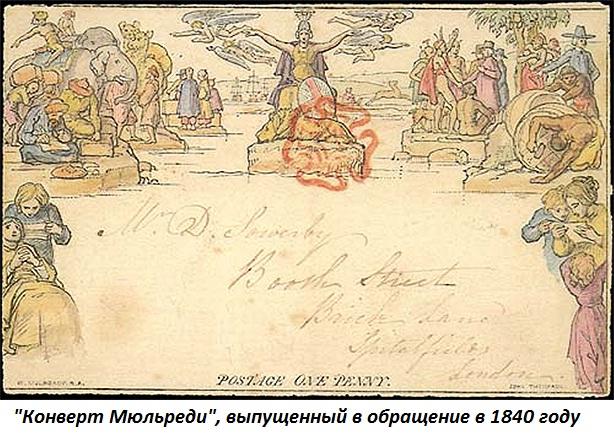 Mr. D. Sowerby
Booth Street
Brick Lane
Spitalfields
London
W. MULREADY. R.A.
POSTAGE ONE PENNY.
JOHN THOMPSON
"Конверт Мюльреди", выпущенный в обращение в 1840 году